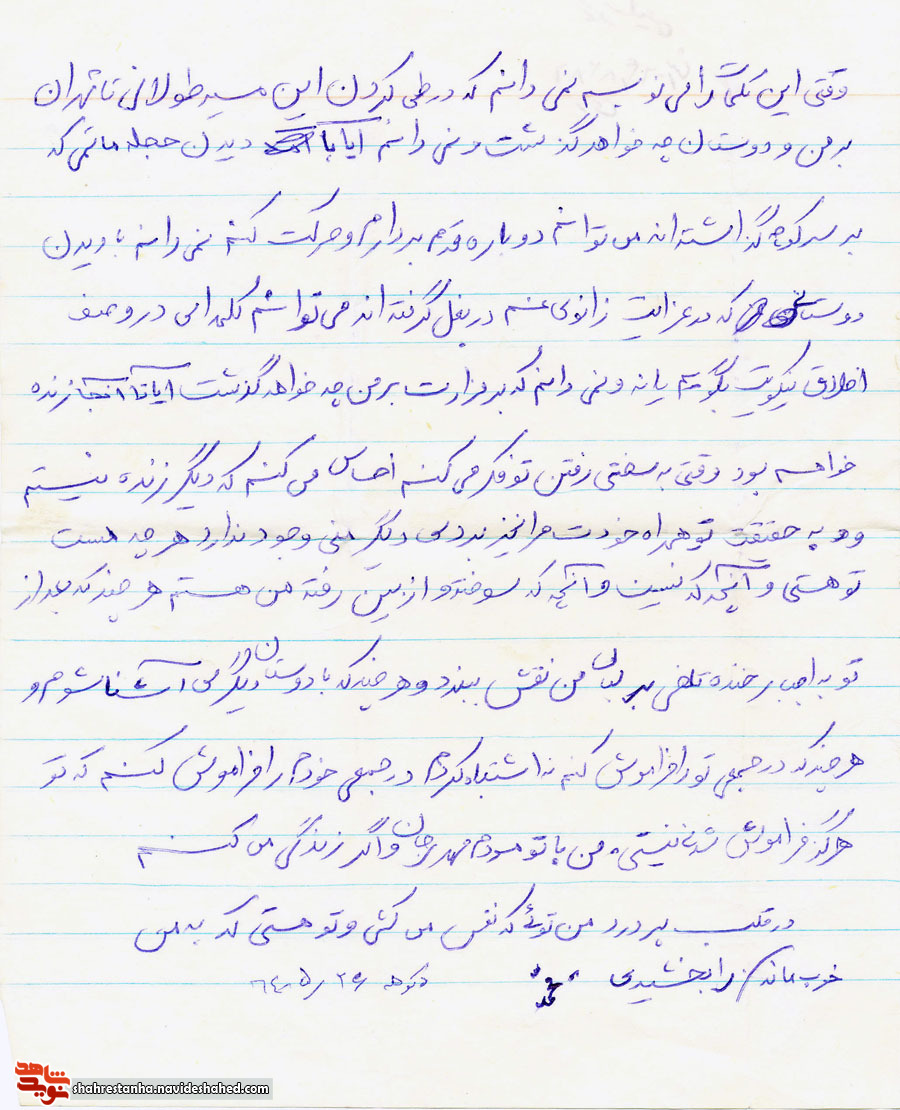 وقتی این کلمات را می نویسم نمی دانم که در طی کردن این مسیر طولانی تا تهران
بر من و دوستان چه خواهد گذشت و نمی دانم آیا با دیدن حجله ماتمی که
بر سر کوچه گذاشته اند می توانم دوباره قدم بردارم و حرکت کنم نمی دانم با دیدن
دوستانی که در عزایت زانوی غم در بغل گرفته اند می توانم کلمه ای در وصف
اخلاق نیکویت بگویم یا نه و نمی دانم که بر مزارت بر من چه خواهد گذشت آیا تا آنجا زنده
خواهم بود وقتی به سختی رفتن تو فکر می کنم احساس می کنم که دیگر زنده نیستم
و به حقیقت تو همراه خودت مرا نیز بردی دیگر منی وجود ندارد هر چه هست
تو هستی و آنچه که نیست و آنچه که سوخته و از بین رفته من هستم هر چند که بعد از
تو به اجبار خنده تلخی بر لبان من نقش ببندد و هر چند که با دوستان دیگر می آشنا شوم و
هر چند که در جمعی تو را فراموش کنم نه اشتباه کردم در جمعی خودم را فراموش کنم که تو
هرگز فراموش شدنی نیستی، من با تو مردم مهرجان و اگر زندگی می کنم
در قلب پر درد من توئی که نفس می کشی و تو هستی که به من
خوب ماندن را بخشیدی محمد دکوهه ۶۴/۵/۲۶
نوید شاهد
shahrestanha.navideshahed.com